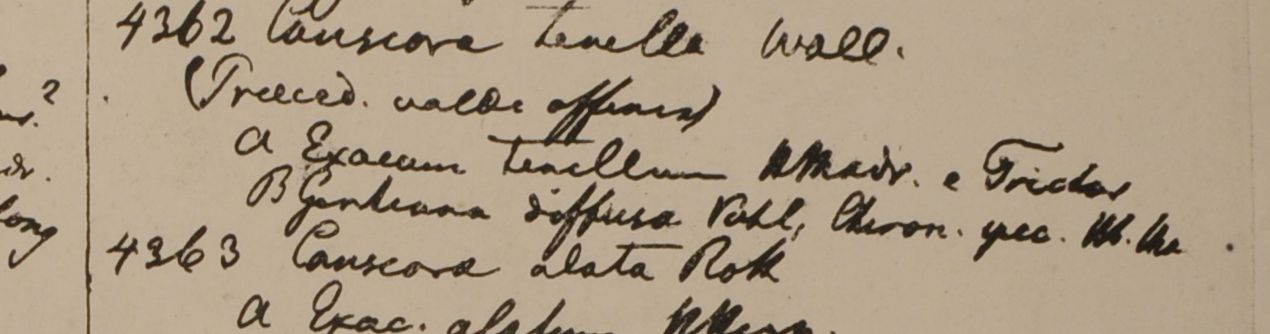 ur.?
dr.
long
4362 Canscora tenella Wall.
(Preced. valde affinis)
A Exacum tenellum HMadr. e
B Gentiana diffusa Vahl, Chiron. spec. Hb.
4363 Canscora alata Roth
A Exac. alatum HHeyn.